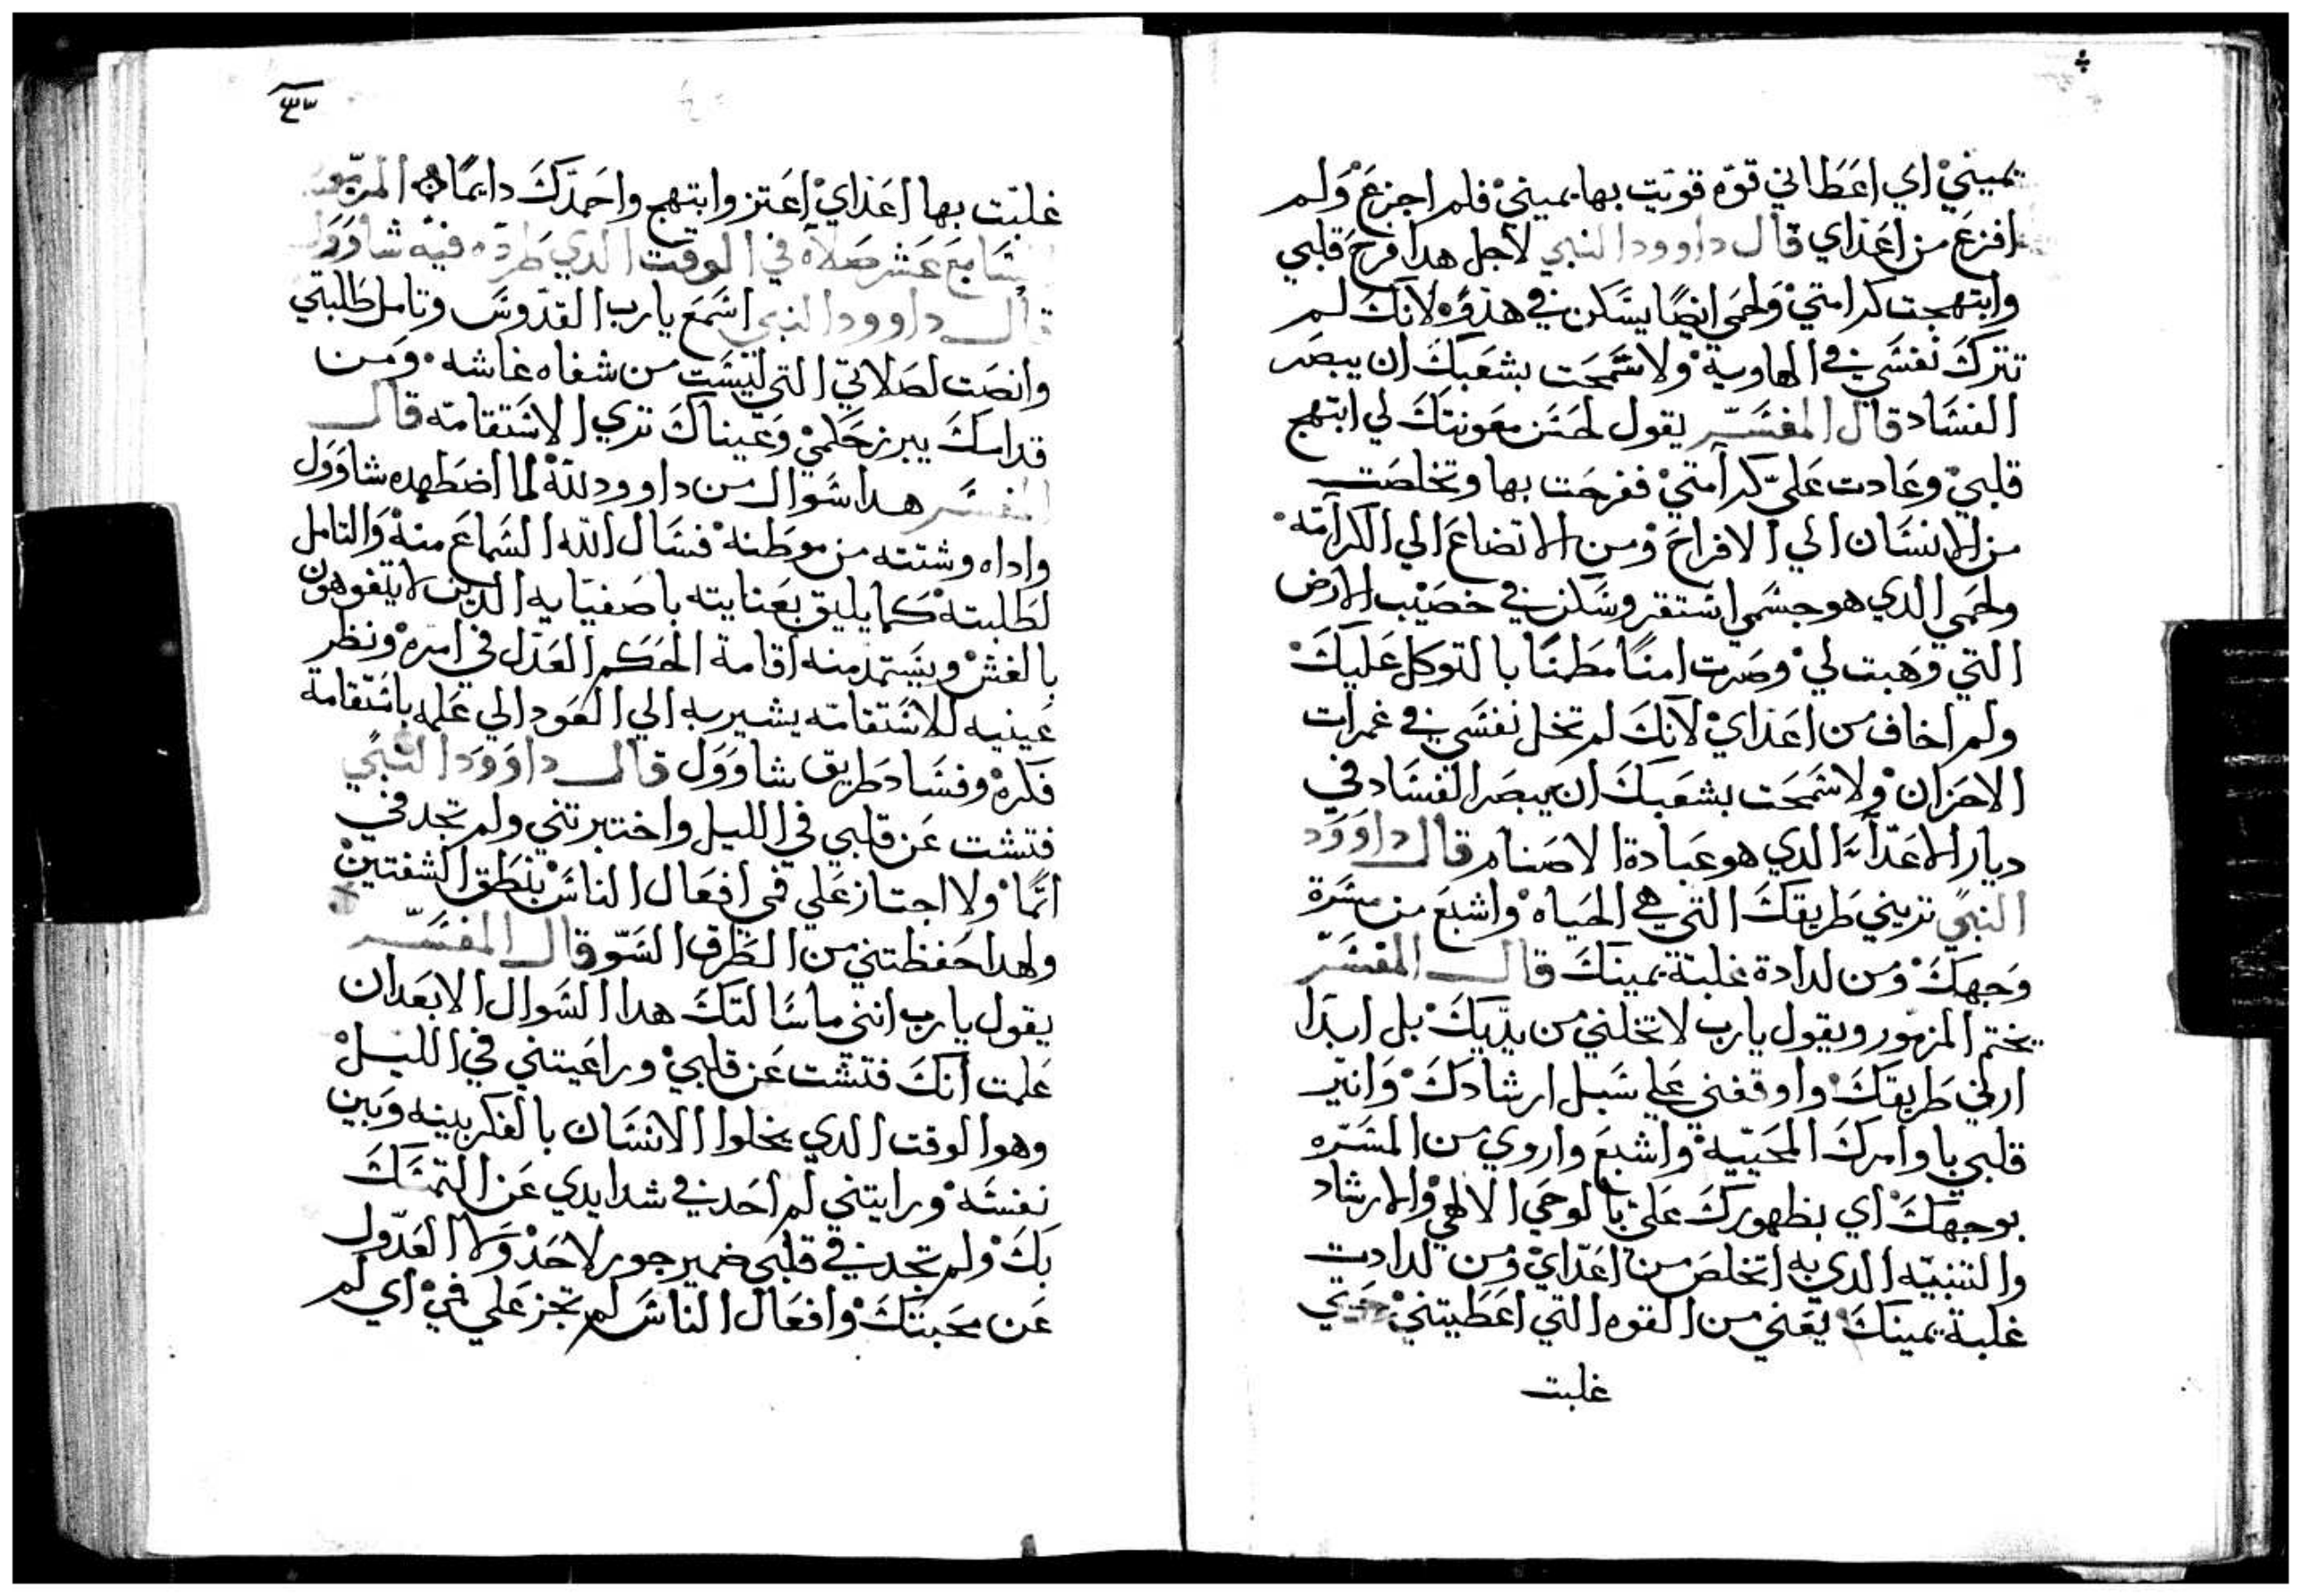 يميني اي اعطاني قوه قويت بها يميني فلم اجزع ولم
افزع من اعداي قال داوود النبي لاجل هدا فرح قلبي
وابتهجت كرامتي ولحمي ايضا يسكن في هدو لانك لم
تترك نفسي في الهاوية ولا سمحت بشعبك ان يبصر
الفساد قال المفسر يقول لحسن معونتك لي ابتهج
قلبي وعادت علي كرامتي ففرحت بها وتخلصت
من الانسان الي الافراح ومن الاتضاع الي الكرامه
ولحمي الدي هو جسمي استقر وسكن في خصيب الارض
التي وهبت لي وصرت امنا مطمنا بالتوكل عليك
ولم اخاف من اعداي لانك لم تخل نفسي في غمرات
الاحزان ولا سمحت بشعبك ان يبصر الفساد في
ديار الاعدآء الدي هو عبادة الاصنام قال داوود
النبي تريني طريقك التي هي الحياه واشبع من مسرة
وجهك ومن لدادة غلبة يمينك قال المفسر
يختم المزمور ويقول يارب لا تخلني من يديك بل ابدا
ارني طريقك واوقفني علي سبل ارشادك وانير
قلبي باوامرك المحييه واشبع واروي من المسره
بوجهك اي بظهورك علي بالوحي الالهي والارشاد
والتنبيه الدي به اتخلص من اعداي ومن لدادت
غلبة يمينك يعني من القوه التي اعطيتني
غلبت
٤٣
غلبت بها اعداي اعتز وابتهج واحمدك دايما المزمور
سابع عشر صلاه في الوقت الدي طرده فيه شاوول
قال داوود النبي اسمع يارب القدوس وتامل طلبتي
وانصت لصلاتي التي ليست من شفاه غاشه ومن
قدامك يبرز حكمي وعيناك تري الاستقامه قال
المفسر هدا سوال من داوود لله لما اضطهده شاوول
واداه وشتته من موطنه فسال الله السماع منه والتامل
لطلبته كما يليق بعنايته باصفيايه الدين لا يتفوهون
بالغش ويستمد منه اقامة الحكم العدل في امره ونظر
عينيه للاستقامه يشير به الي العود الي علمه باستقامة
فكره وفساد طريق شاوول قال داوود النبي
فتشت عن قلبي في الليل واختبرتني ولم تجد في
اثما ولا اجتاز علي فمي افعال الناس بنطق الشفتين
ولهدا حفظتني من الطرق السو قال المفسر
يقول يارب انني ما سالتك هدا السوال الا بعد ان
علمت انك فتشت عن قلبي وراعيتني في الليل
وهو الوقت الدي يخلوا الانسان بالفكر بينه وبين
نفسه ورايتني لم احد في شدايدي عن التمسك
بك ولم تجد في قلبي ضمير جور لاحد ولا العدول
عن محبتك وافعال الناس لم تجز علي في اي لم